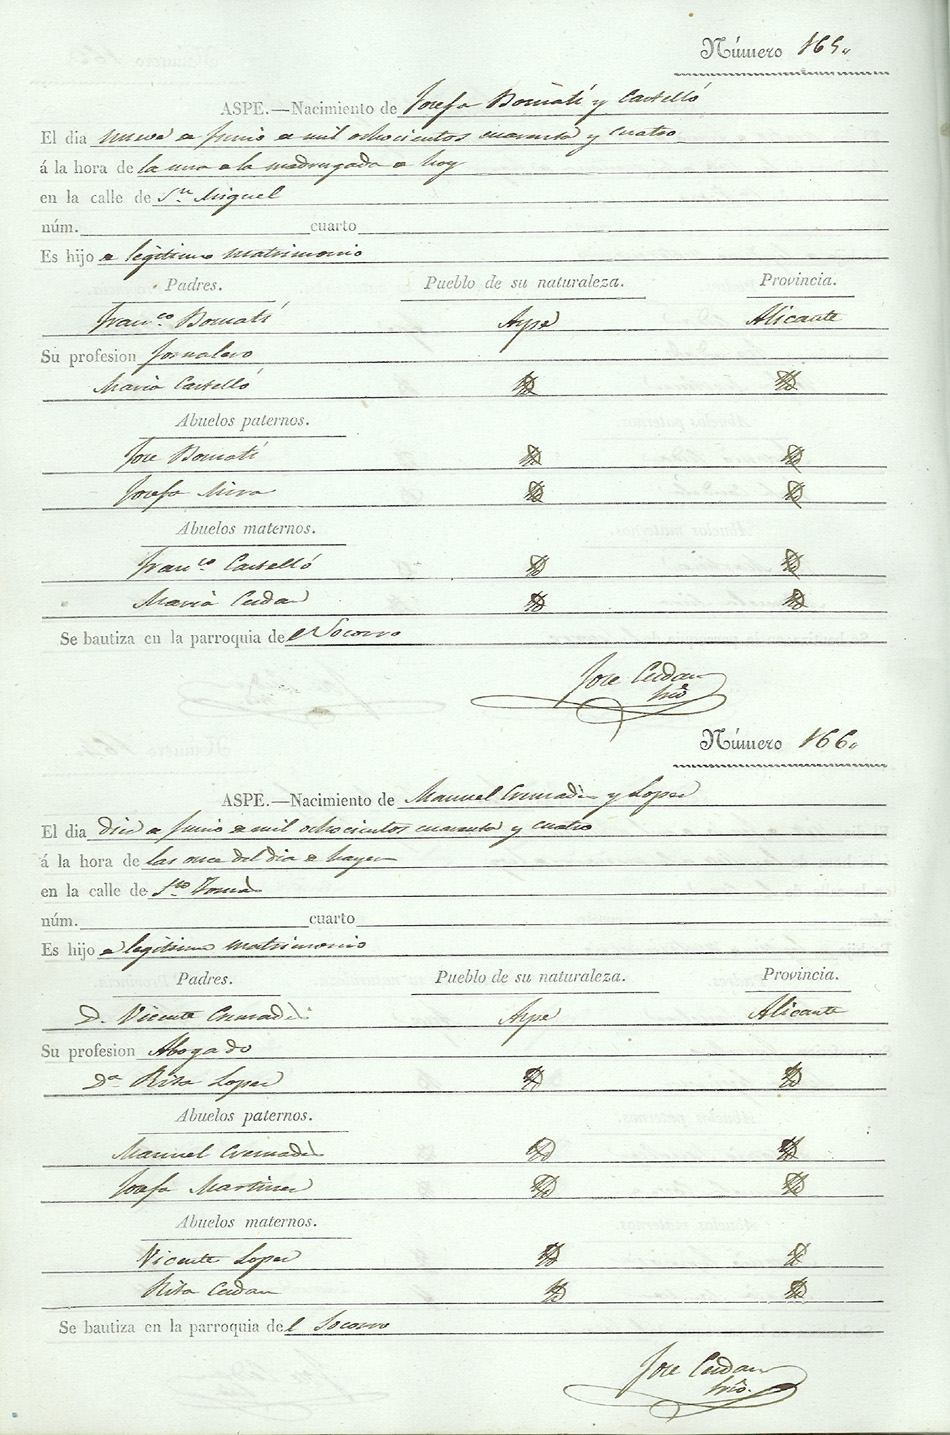 Número 165.
ASPE.—Nacimiento de Josefa Bornatí y Castelló
El dia nueve de Junio de mil ochocientos cuarenta y cuatro
á la hora de la una de la madrugada de hoy
en la calle de Sn Miguel
núm. cuarto
Es hijo de legitimo matrimonio
Padres. Pueblo de su naturaleza. Provincia.
Franco Bornatí Aspe Alicante
Su profesion Jornalero
Maria Castelló
Abuelos paternos.
Jose Bornatí
Josefa Mira
Abuelos maternos.
Franco Castelló
Maria Cerdan
Se bautiza en la parroquia del Socorro
Jose Cerdan
Srio
Número 166.
ASPE.—Nacimiento de Manuel Cremades y Lopez
El dia diez de Junio de mil ochocientos cuarenta y cuatro
á la hora de las once del dia de hayer
en la calle de Sto Tomás
núm. cuarto
Es hijo de legitimo matrimonio
Padres. Pueblo de su naturaleza. Provincia.
D. Vicente Cremades Aspe Alicante
Su profesion Abogado
Da Rita Lopez
Abuelos paternos.
Manuel Cremades
Josefa Martinez
Abuelos maternos.
Vicente Lopez
Rita Cerdan
Se bautiza en la parroquia del Socorro
Jose Cerdan
Srio.